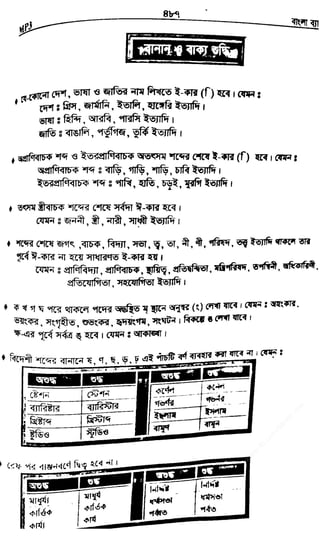 ৪৮৭
MP3
বাংলা ব্যা
বানান ও বাক্য শুদ্ধি
যে-কোনো দেশ, ভাষা ও জাতির নাম লিখতে ই-কার (ি) হবে। যেমন :
দেশ : গ্রিস, জার্মানি, ইতালি, হাঙ্গেরি ইত্যাদি।
ভাষা : হিন্দি, আরবি, ফারসি ইত্যাদি।
জাতি : বাঙালি, পর্তুগিজ, তুর্কি ইত্যাদি।
অপ্রাণিবাচক শব্দ ও ইতরপ্রাণিবাচক অতৎসম শব্দের শেষে ই-কার (ি) হবে। যেমন :
অপ্রাণিবাচক শব্দ : বাড়ি, গাড়ি, শাড়ি, চাবি ইত্যাদি।
ইতরপ্রাণিবাচক শব্দ : পাখি, হাতি, চড়ুই, মুরগি ইত্যাদি।
তৎসম স্ত্রীবাচক শব্দের শেষে সর্বদা ঈ-কার হবে।
যেমন : জননী, স্ত্রী, নারী, সাধ্বী ইত্যাদি।
শব্দের শেষে জগৎ, বাচক, বিদ্যা, সভা, ত্ব, তা, নী, ণী, পরিষদ, তত্ত্ব ইত্যাদি থাকলে তার
পূর্বে ঈ-কার না হয়ে সাধারণত ই-কার হয়।
যেমন : প্রাণিবিদ্যা, প্রাণিবাচক,
প্রতিযোগিতা, সহযোগিতা ইত্যাদি।
ক খ গ ঘ পরে থাকলে পদের অন্তস্থিত ম্ স্থানে অনুস্বার (ং) লেখা যাবে। যেমন : অহংকার,
ভয়ংকর, সংগীত, শুভংকর, হৃদয়ংগম, সংঘটন।
বিদেশি শব্দের বানানে ষ, ণ, ছ, ঢ়, এই পাঁচটি বর্ণ ব্যবহার করা যাবে না। যেমন :
অশুদ্ধ শুদ্ধ অশুদ্ধ শুদ্ধ
ষ্টেশন স্টেশন কর্ণেল কর্নেল
ব্যারিষ্টার ব্যারিস্টার গভর্ণর গভর্নর
খ্রিষ্টাব্দ খ্রিস্টাব্দ ইছলাম ইসলাম
ষ্টুডিও স্টুডিও বামুণ বামুন
রেফ পর ব্যঞ্জনবর্ণে দ্বিত্ব হবে না।
অশুদ্ধ শুদ্ধ অশুদ্ধ শুদ্ধ
মাধুর্য্য মাধুর্য
কার্ত্তিক কার্তিক পর্ব্বত পর্বত
কার্য্য কার্য